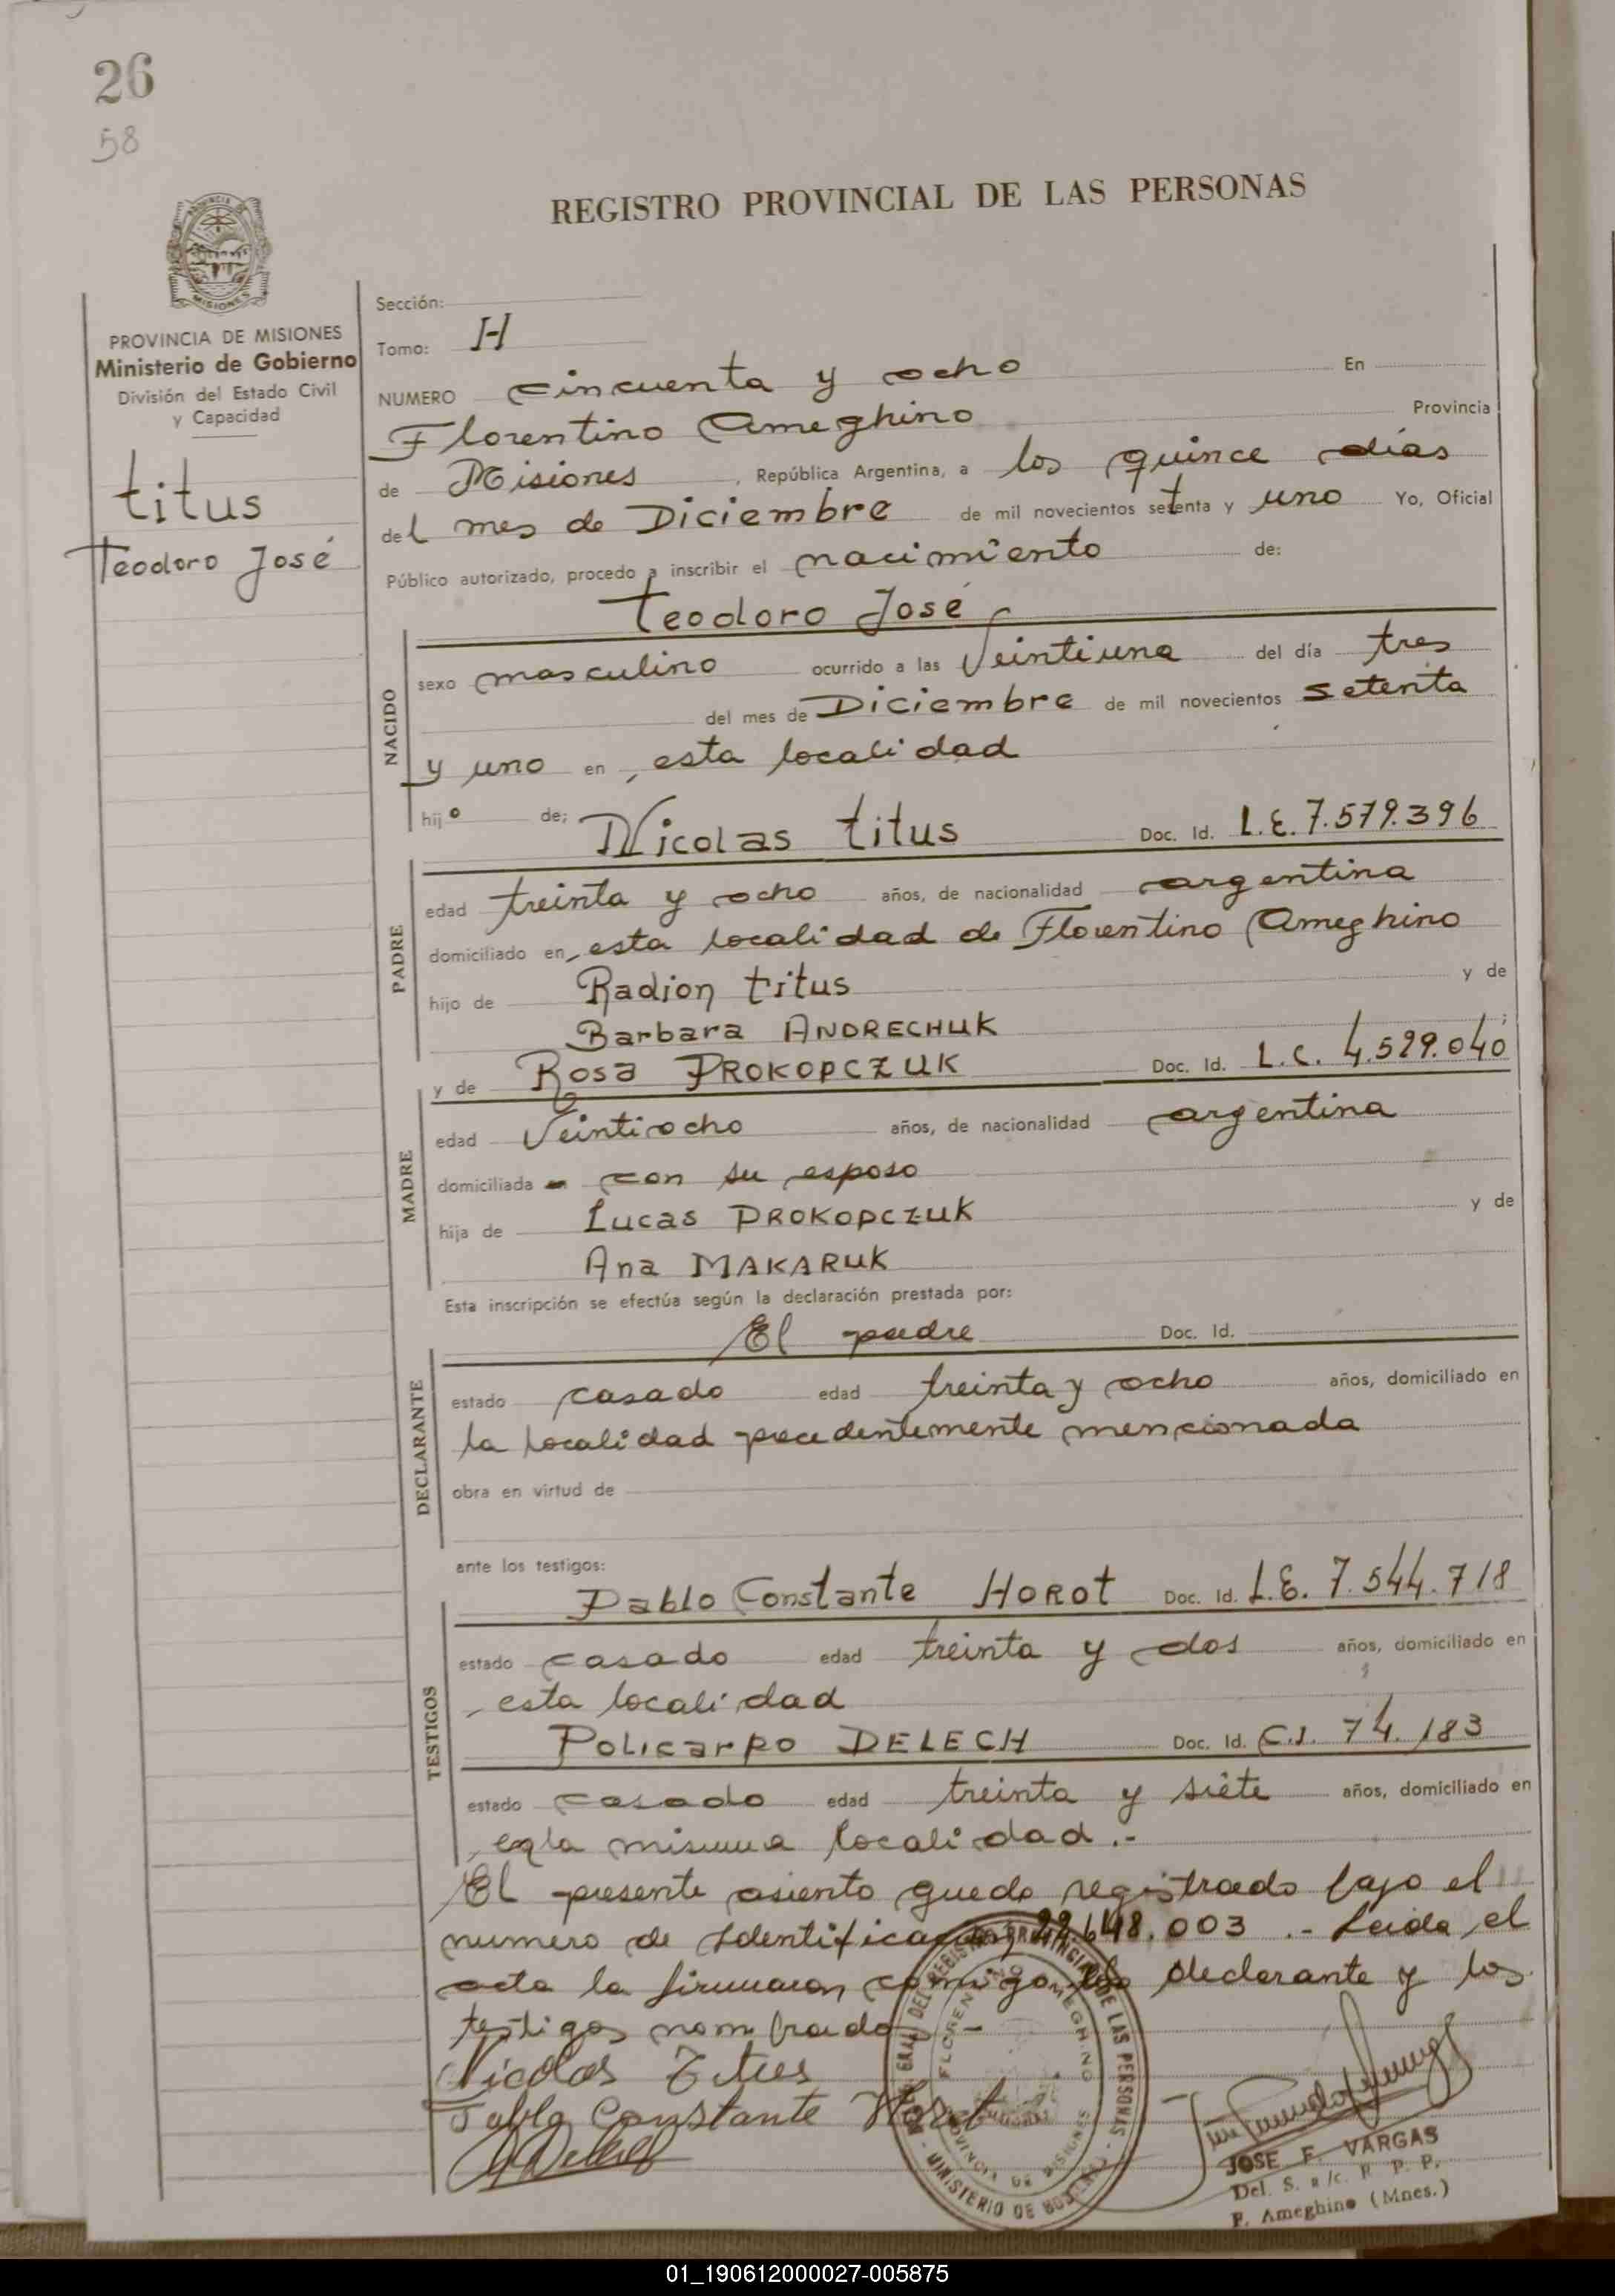 26
58
REGISTRO PROVINCIAL DE LAS PERSONAS
PROVINCIA DE MISIONES
Ministerio de Gobierno
División del Estado Civil
y Capacidad
titus
Teodoro José
Sección:
Tomo: H
NUMERO cincuenta y ocho En
Florentino Ameghino Provincia
de Misiones, República Argentina, a los quince días
del mes de Diciembre de mil novecientos setenta y uno Yo, Oficial
Público autorizado, procedo a inscribir el nacimiento de:
Teodoro José
NACIDO
sexo masculino ocurrido a las Veintiuna del día tres
del mes de Diciembre de mil novecientos setenta
y uno en, esta localidad
hijo de; Nicolas titus Doc. Id. L.E. 7.579.396
PADRE
edad treinta y ocho años, de nacionalidad argentina
domiciliado en, esta localidad de Florentino Ameghino
hijo de Radion titus y de
Barbara ANDRECHUK ;
y de Rosa PROKOPCZUK Doc. Id. L.C. 4.529.040
MADRE
edad Veintiocho años, de nacionalidad argentina
domiciliada - con su esposo
hija de Lucas PROKOPCZUK y de
Ana MAKARUK
Esta inscripción se efectúa según la declaración prestada por:
El padre Doc. Id.
DECLARANTE
estado casado edad treinta y ocho años, domiciliado en
la localidad precedentemente mencionada
obra en virtud de
ante los testigos:
Pablo Constante HOROT Doc. Id. L.E. 7.544.718
TESTIGOS
estado casado edad treinta y dos años, domiciliado en
, esta localidad
Policarpo DELECH Doc. Id. C.I. 74.183
estado casado edad treinta y siete años, domiciliado en
, en la misma localidad.-
El presente asiento queda registrado bajo el
numero de Identificacion 22.648.003 .- Leida el
acta la firman conmigo el declarante y los
testigos nombrados -
Nicolas Titus
Pablo Constante Horot
JOSE F. VARGAS
Del. S. a/c. R. P. P.
F. Ameghino (Mnes.)
01_190612000027-005875